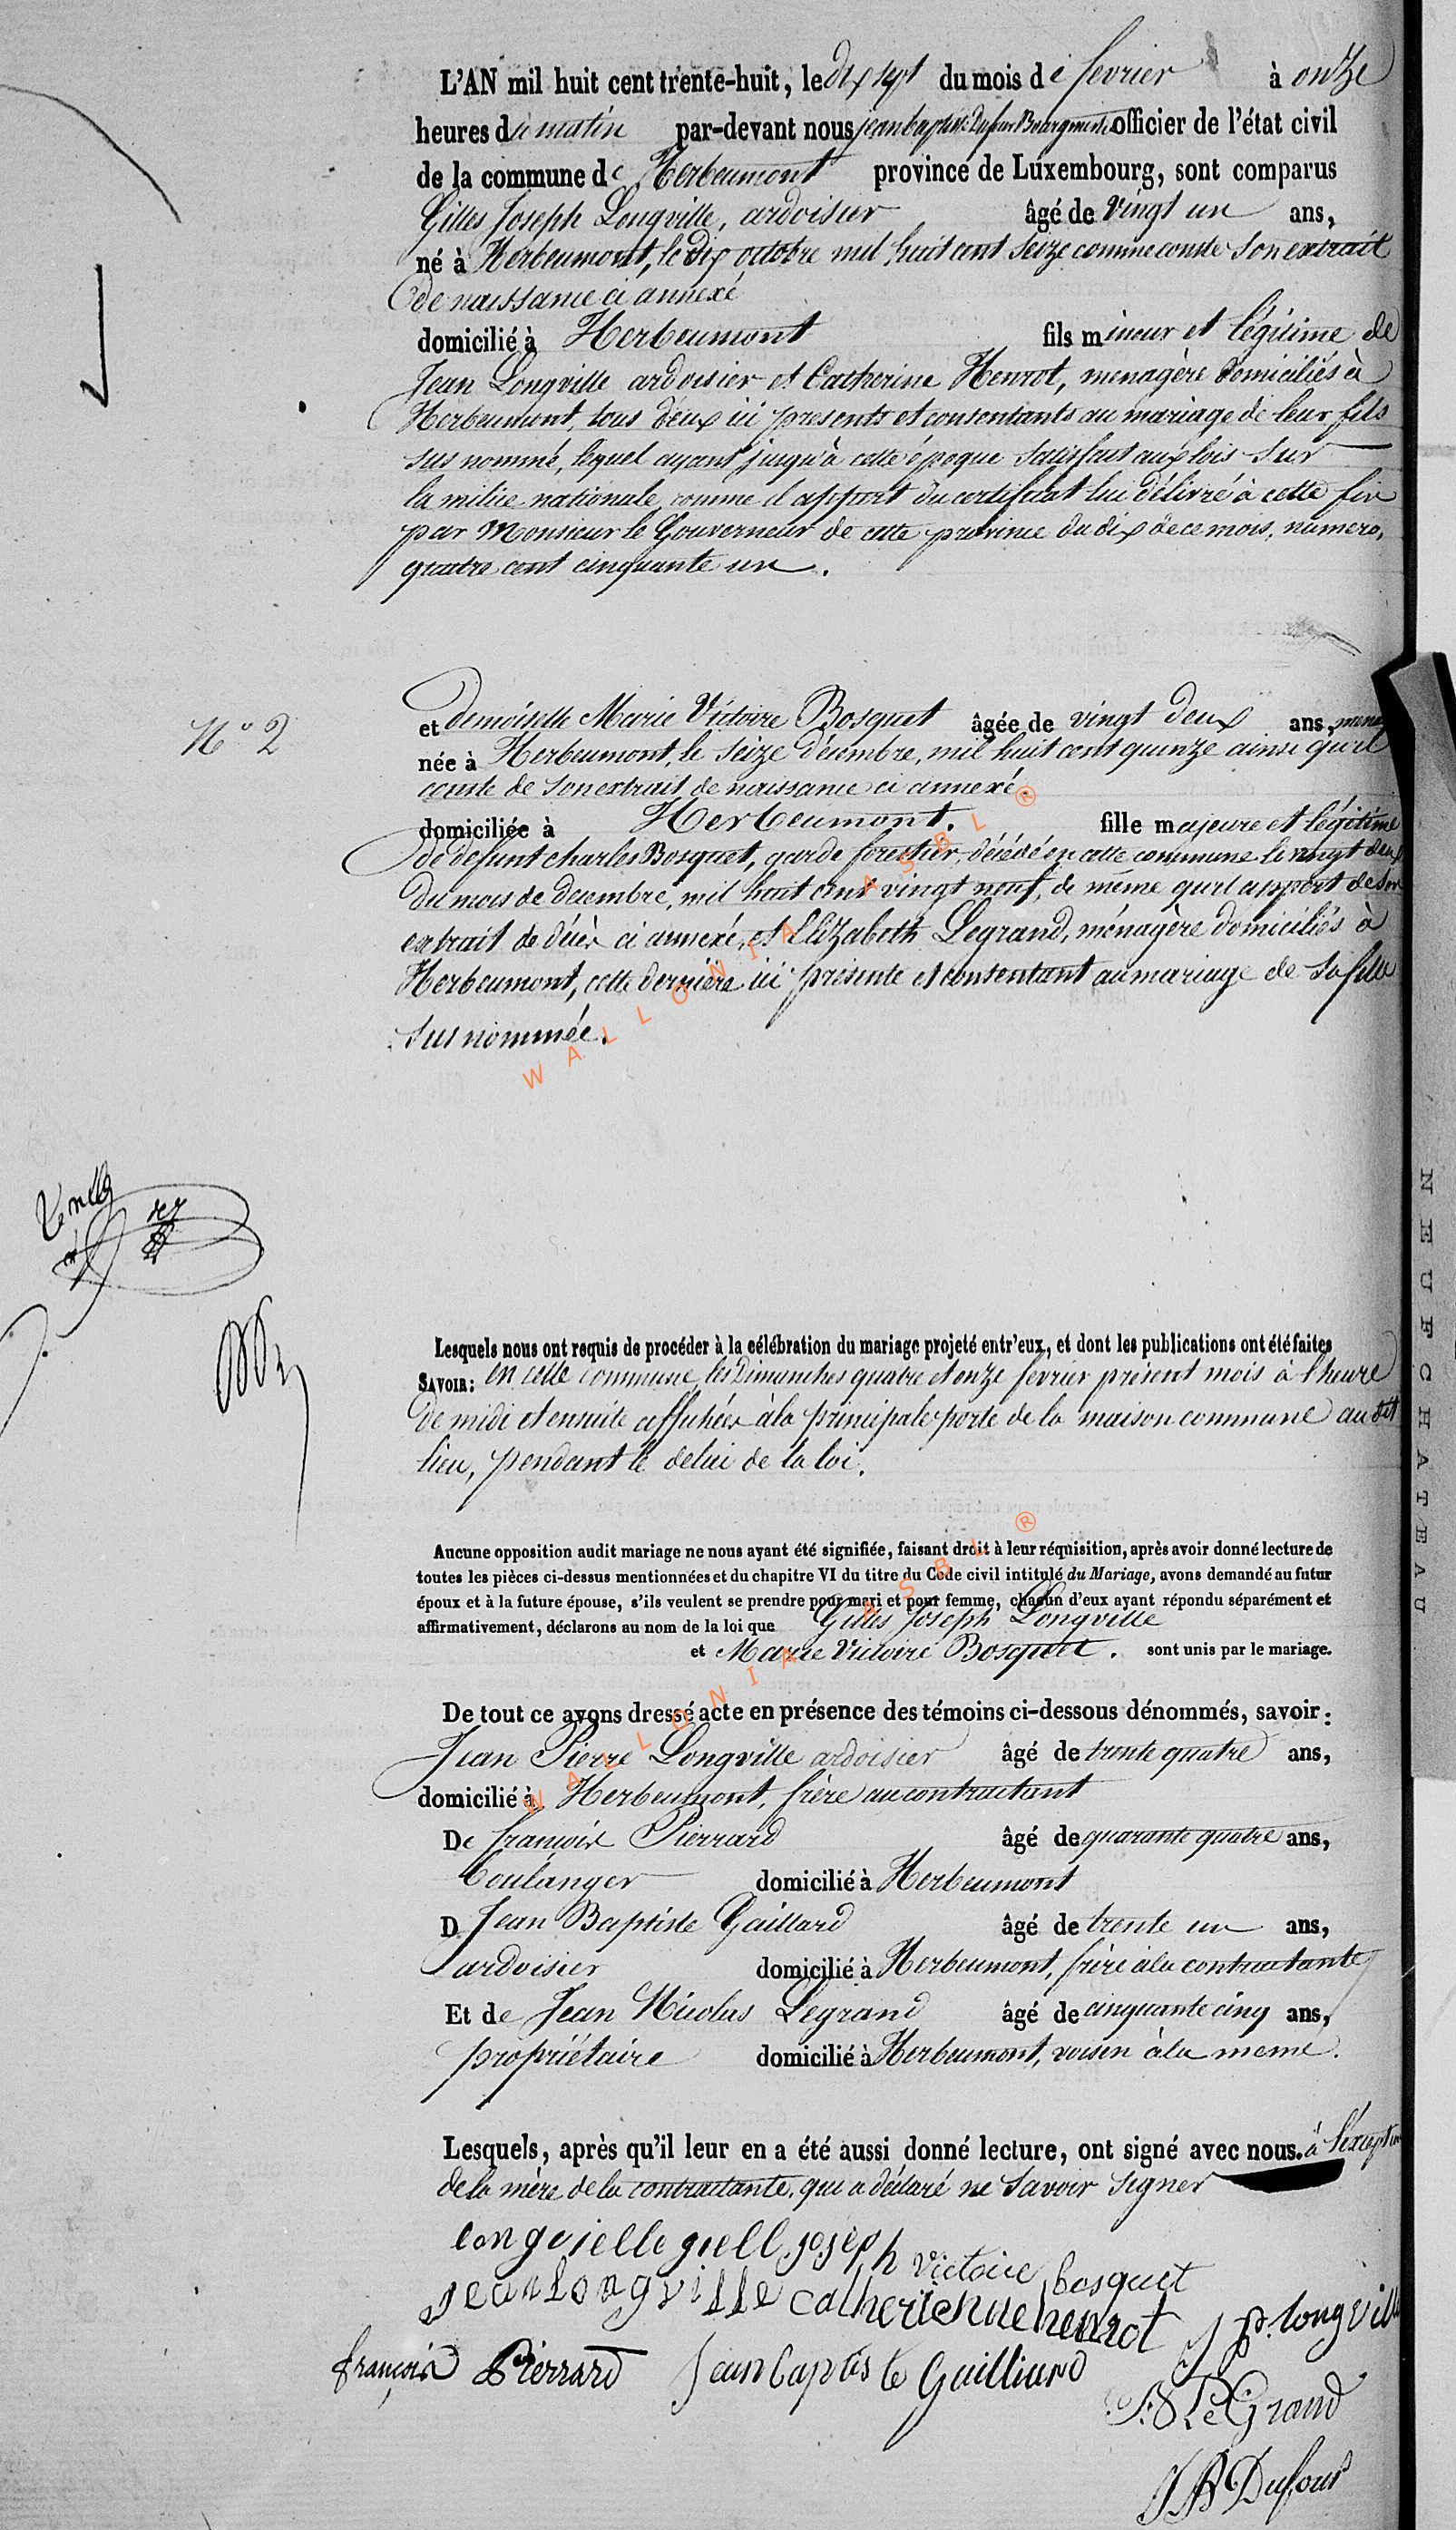 L'AN mil huit cent trente-huit, le dix sept du mois de fevrier à onze
heures du matin par-devant nous jean baptiste Dufour Bourgmestre officier de l'état civil
de la commune de Herbeumont province de Luxembourg, sont comparus
Gilles Joseph Longville, ardoisier âgé de vingt un ans,
né à Herbeumont, le dix octobre mil huit cent seize comme conste son extrait
de naissance ci annexé
domicilié à Herbeumont fils mineur et légitime de
Jean Longville ardoisier et Catherine Henrot, menagère domiciliés à
Herbeumont, tous deux ici presents et consentants au mariage de leur fils
sus nommé, lequel ayant jusqu'à cette époque satisfait aux lois sur
la milice nationale comme il appert du certificat lui délivré à cette fin
par Monsieur le Gouverneur de cette province du dix de ce mois, numero,
quatre cent cinquante un.
et demoiselle Marie Victoire Bosquet âgée de vingt deux ans,
N° 2
née à Herbeumont, le seize décembre, mil huit cent quinze ainsi qu'il
conste de son extrait de naissance ci annexé.
domiciliée à Herbeumont. fille majeure et légitime
de défunt charles Bosquet, garde forestier, décédé en cette commune le vingt deux
du mois de decembre, mil huit cent vingt neuf, de même qu'il appert de son
extrait de décès ci annexé, et Elizabeth Legrand, ménagère domiciliés à
Herbeumont, cette dernière ici présente et consentant au mariage de sa fille
sus nommée.
WALLONIA ASBL ®
Lesquels nous ont requis de procéder à la célébration du mariage projeté entr'eux, et dont les publications ont été faites
SAVOIR: en cette commune, les Dimanches quatre et onze fevrier présent mois à l'heure
de midi et ensuite affichées à la principale porte de la maison commune au dit
lieu, pendant le delai de la loi.
Aucune opposition audit mariage ne nous ayant été signifiée, faisant droit à leur réquisition, après avoir donné lecture de
toutes les pièces ci-dessus mentionnées et du chapitre VI du titre du Code civil intitulé du Mariage, avons demandé au futur
époux et à la future épouse, s'ils veulent se prendre pour mari et pour femme, chacun d'eux ayant répondu séparément et
affirmativement, déclarons au nom de la loi que Gilles Joseph Longville
et Marie Victoire Bosquet. sont unis par le mariage.
De tout ce avons dressé acte en présence des témoins ci-dessous dénommés, savoir:
Jean Pierre Longville ardoisier âgé de trente quatre ans,
domicilié à Herbeumont, frère au contractant
De françois Pierrard âgé de quarante quatre ans,
boulanger domicilié à Herbeumont
D Jean Baptiste Gaillard âgé de trente un ans,
ardoisier domicilié à Herbeumont, frère à la contractante
Et de Jean Nicolas Legrand âgé de cinquante cinq ans,
propriétaire domicilié à Herbeumont, voisin à la meme.
WALLONIA ASBL ®
Lesquels, après qu'il leur en a été aussi donné lecture, ont signé avec nous. à l'exception
de la mère de la contractante, qui a déclaré ne savoir signer
longvielle giell joseph victoire bosquet
jean longville catherienne henrot J P. longville
françois Pierrard Jean baptiste Gailliard
LeGrand
JB Dufour
NEUFCHATEAU